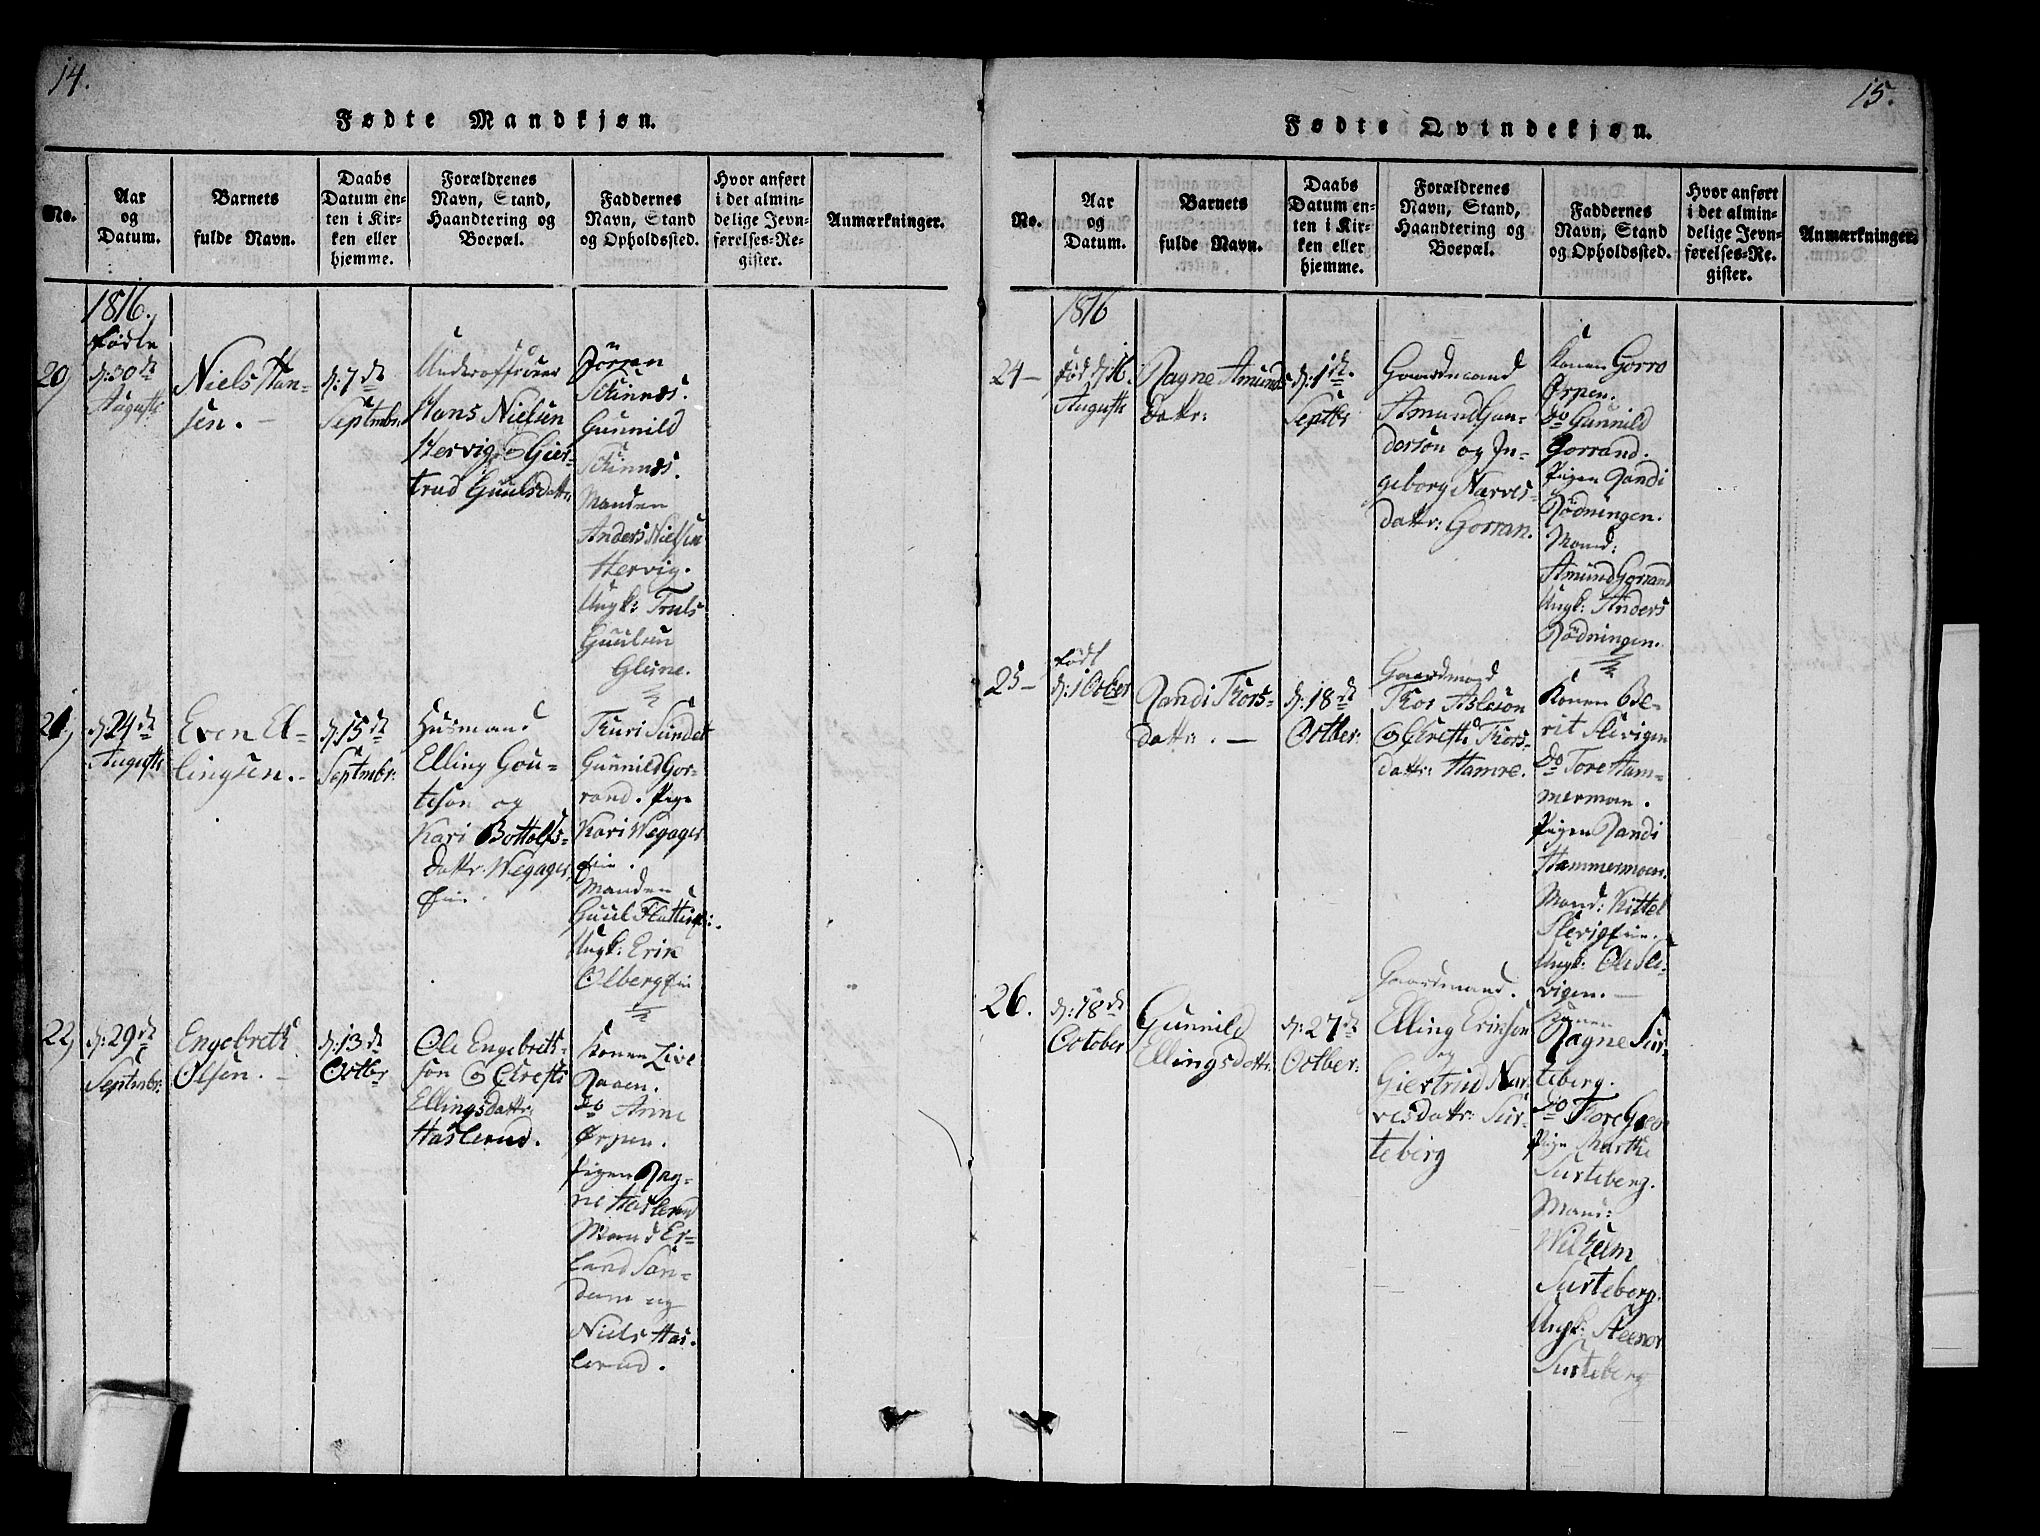 14.
Fødte Mandkjøn.
No.
Aar
og
Datum.
Barnets
fulde Navn.
Daabs
Datum en-
ten i Kir-
ken eller
hjemme.
Forældrenes
Navn, Stand,
Haandtering og
Boepæl.
Faddernes
Navn, Stand
og Opholdssted.
Hvor anført
i det almin-
delige Jevn-
førelses-Re-
gister.
Anmærkninger.
1816.
fødte
20,
d: 30 dt
Augusti
Niels Han-
sen. —
d: 7 dt
Septmbr.
Underofficeer
Hans Nielsen
Hervig og Gier-
trud Guulsdattr
Jörgen
Skinnes.
Gunnild
Skinnes.
Manden
Anders Nielsen
Hervig.
Ungk: Truls
Guulsen
Glesne.
21,
d: 24 dt
Augusti
Even El-
lingsen. -
d: 15 dt
Septmbr:
Husmand
Elling Gou-
teson og
Kari Bottolfs-
dattr: Wegager-
eie.
Thuri Sundet
Gunnild Gor-
rand. Pige
Kari Wegager
eie.
Manden
Guul Flattin
Ungk: Erik
Olberg eie
22,
d: 29 dt
Septmbr:
Engebreth
Olsen. -
d: 13 dt
Octbr
Ole Engebreth-
son og Chresti
Ellingsdattr:
Haslerud.
Konen Live
Raaen.
do Anne
Ørpen.
Pigen Rag-
ne Haslerud
Mand Er-
land San-
dum og
Niels Has-
lerud.
15.
Fødte Qvindekjøn.
No.
Aar
og
Datum.
Barnets
fulde Navn.
Daabs
Datum en-
ten i Kir-
ken eller
hjemme.
Forældrenes
Navn, Stand,
Haandtering og
Boepæl.
Faddernes
Navn, Stand
og Opholdssted.
Hvor anført
i det almin-
delige Jevn-
førelses-Re-
gister.
Anmærkninger.
1816
24 —
fød d: 16.
Augusti
Ragne Amunds
dattr:
d: 1 dt.
Septbr
Gaardmand
Amund Gun-
dorsön og In-
geborg Narves-
dattr: Gorran.
Konen Gorro
Ørpen.
do Gunnild
Gorrand.
Pigen Randi
Rödningen.
Mand:
Amund Gorrand
Ungk: Anders
Rödningen.
25 —
født
d: 1 October
Randi Thors-
dattr. —
d: 18 dt
Octber:
Gaardmand
Thor Asleson
og Chresti Thors-
dattr: Hamre.
Konen Be-
rit Slevigen
do Tore Ham-
mermoen.
Pigen Randi
Hammermoen.
Mand: Kittel
Slevig eie.
Ungk: Ole Sle-
vigen. —
26.
d: 18 dt
October
Gunnild
Ellingsdattr.
d: 27 dt
Octber:
Gaardmand.
Elling Eriksen
og
Giertrud Nar-
vesdattr: Sur-
teberg
Konen
Ragne Sur-
teberg.
do Thore
Pige Marthe
Surteberg.
Mand:
Wilhelm
Surteberg.
Ungk: Steenor
Surteberg